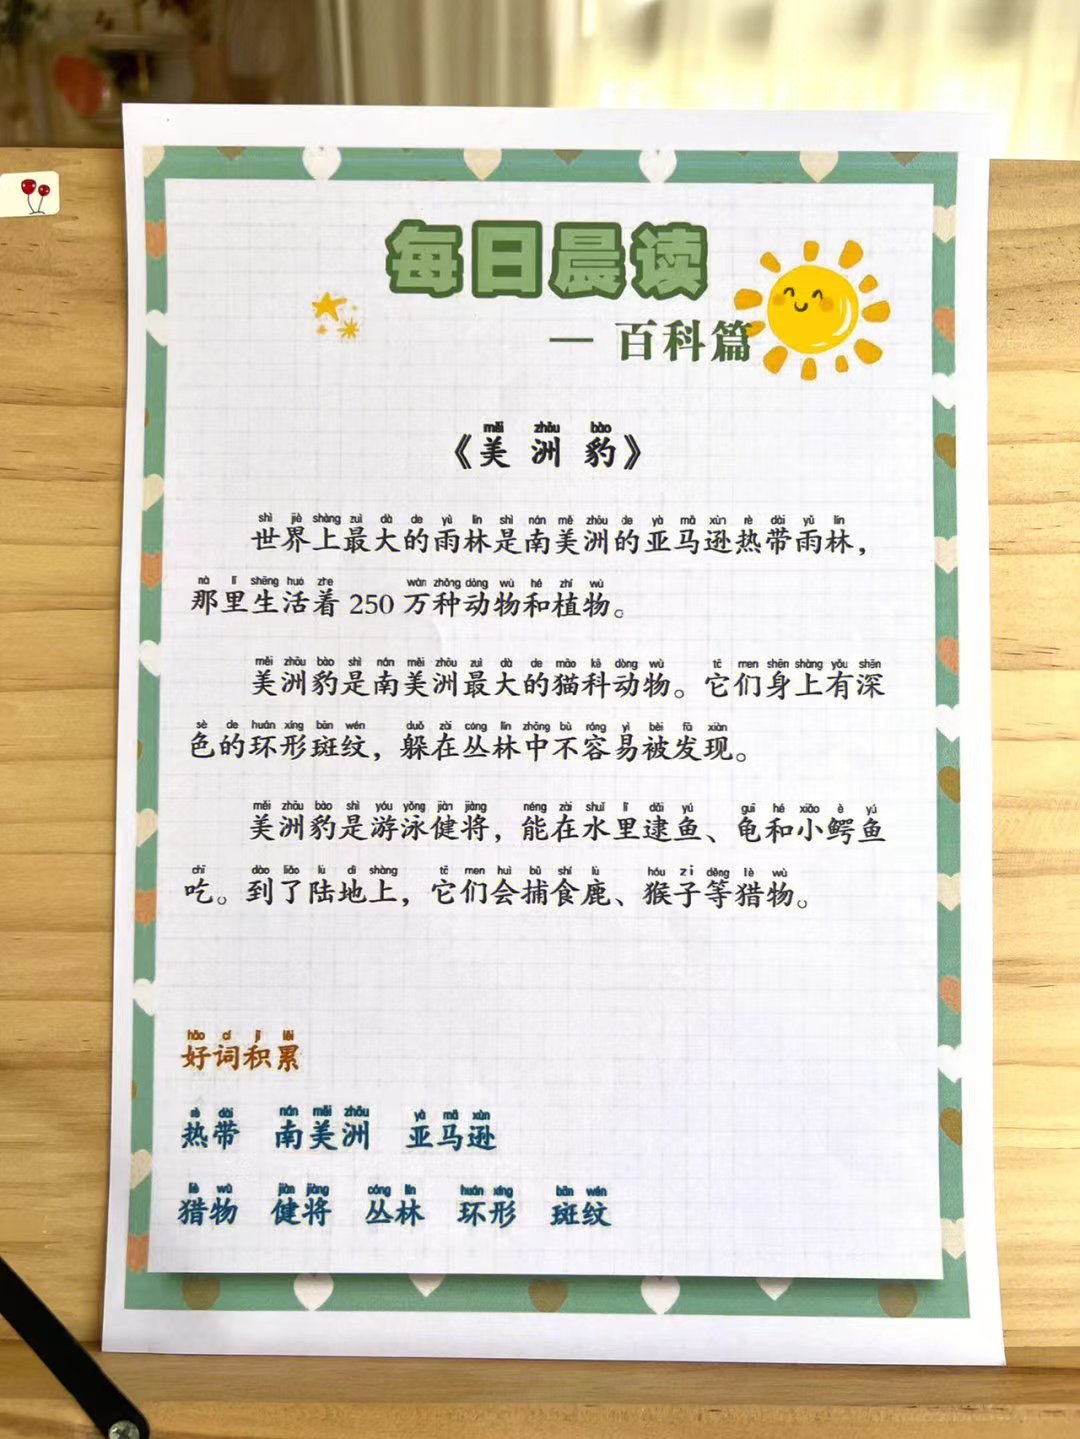 每日晨读
— 百科篇
měi zhōu bào
《美洲豹》
shì jiè shàng zuì dà de yǔ lín shì nán měi zhōu de yà mǎ xùn rè dài yǔ lín
世界上最大的雨林是南美洲的亚马逊热带雨林，
nà lǐ shēng huó zhe wàn zhǒng dòng wù hé zhí wù
那里生活着 250 万种动物和植物。
měi zhōu bào shì nán měi zhōu zuì dà de māo kē dòng wù tā men shēn shàng yǒu shēn
美洲豹是南美洲最大的猫科动物。它们身上有深
sè de huán xíng bān wén duǒ zài cóng lín zhōng bù róng yì bèi fā xiàn
色的环形斑纹，躲在丛林中不容易被发现。
měi zhōu bào shì yóu yǒng jiàn jiàng néng zài shuǐ lǐ dǎi yú guī hé xiǎo è yú
美洲豹是游泳健将，能在水里逮鱼、龟和小鳄鱼
chī dào liǎo lù dì shàng tā men huì bǔ shí lù hóu zi děng liè wù
吃。到了陆地上，它们会捕食鹿、猴子等猎物。
hǎo cí jī lěi
好词积累
rè dài nán měi zhōu yà mǎ xùn
热带 南美洲 亚马逊
liè wù jiàn jiàng cóng lín huán xíng bān wén
猎物 健将 丛林 环形 斑纹